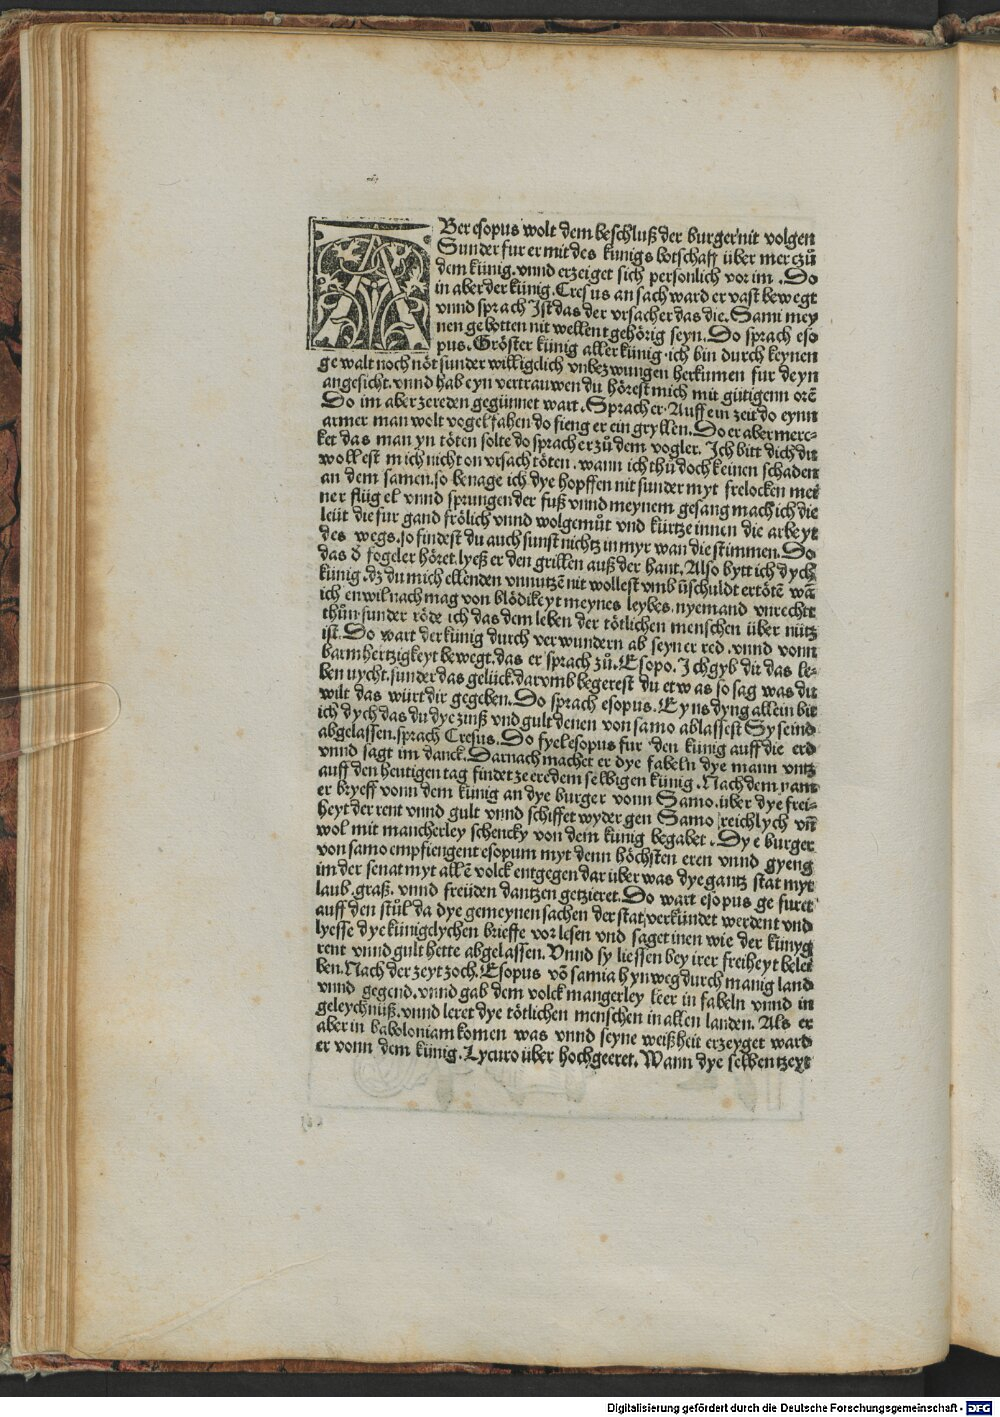 ABer esopus wolt dem beschluß der burger nit volgen
Sunder fur er mit des künigs botschafft über mer tzů
dem künig. vnnd erzeiget sich personlich vor im . Do
in aber der künig. Cresus an sach ward er vast bewegt
vnnd sprach Jst das der vrsacher das die. Sami mey
nen gebotten nit wellent gehörig seyn. Do sprach eso
pus. Gröster künig aller künig . ich bin durch keynen
gewalt noch nöt sunder willigclich vnbezwungen herkumen fur deyn
angesicht. vnnd hab eyn vertrauwen du hörest mich mit gütigenn orē
Do im aber zereden gegünnet wart. Sprach er. Auff ein zeit do eynn
armer man wolt vogel fahen do fieng er ein gryllen. Do er aber merc-
ket das man yn töten solte do sprach er zů dem vogler. Jch bitt dich du
wollest mich nicht on vrsach töten . wann ich thů doch keinen schaden
an dem samen. so benage ich dye hopffen nit sunder myt frelocken mei
ner flügel vnnd sprungen der fuß vnnd meynem gesang mach ich die
leüt die fur gand frölich vnnd wolgemůt vnd kürtze innen die arbeyt
des wegs. so findest du auch sunst nichtz in myr wan die stimmen. Do
das ð fogeler höret. lyeß er den grillen auß der hant. Also bytt ich dych
künig . dz du mich ellenden vnnutzē nit wollest vmb vschuldt ertötē wā
ich en wil nach mag von blödikeyt meynes leybes. nyemand vnrecht
thůn sunder röde ich das dem leben der tötlichen menschen über nütz
ist. Do wart der künig durch verwundern ab seyner red . vnnd vonn
barmhertzigkeyt bewegt. das er sprach zů. Esopo. Jch gyb dir das le-
ben nycht. sunder das gelück. darvmb begerest du etwas so sag was du
wilt das würt dir gegeben. Do sprach esopus. Eyns dyng allein bit
ich dych das du dye zinß vnd gult denen von samo ablassest Sy seind
abgelassen. sprach Cresus. Do fyel esopus fur den künig auff die erd
vnnd sagt im danck. Darnach machet er dye fabeln dye mann vntz
auff den heutigen tag findet ze eren dem selbigen künig . Nach dem nam
er bryeff vonn dem künig an dye burger vonn Samo. über dye frei-
heyt der rent vnnd gult vnnd schiffet wyder gen Samo reichlych vñ
wol mit mancherley schencky von dem künig begabet . Dye burger
von samo empfiengent esopum myt denn höchsten eren vnnd gyeng
im der senat myt allē volck entgegen dar über was dye gantz stat myt
laub. graß. vnnd freüden dantzen getzieret. Do wart esopus gefuret
auff den stůl da dye gemeynen sachen der stat verkündet werdent vnd
lyesse dye künigclychen brieffe vor lesen vnd saget inen wie der künyg
rent vnnd gult hette abgelassen. Vnnd sy liessen bey irer freiheyt belei
ben. Nach der zeyt zoch. Esopus vō samia hynweg durch manig land
vnnd gegend. vnnd gab dem volck mangerley leer in fabeln vnnd in
geleychnüß. vnnd leret dye tötlichen menschen in allen landen. Als er
aber in baboloniam komen was vnnd seyne weißheit erzeyget ward
er vonn dem künig. Lycuro über hochgeeret. Wann dye selben tzeyt
Digitalisierung gefördert durch die Deutsche Forschungsgemeinschaft - DFG